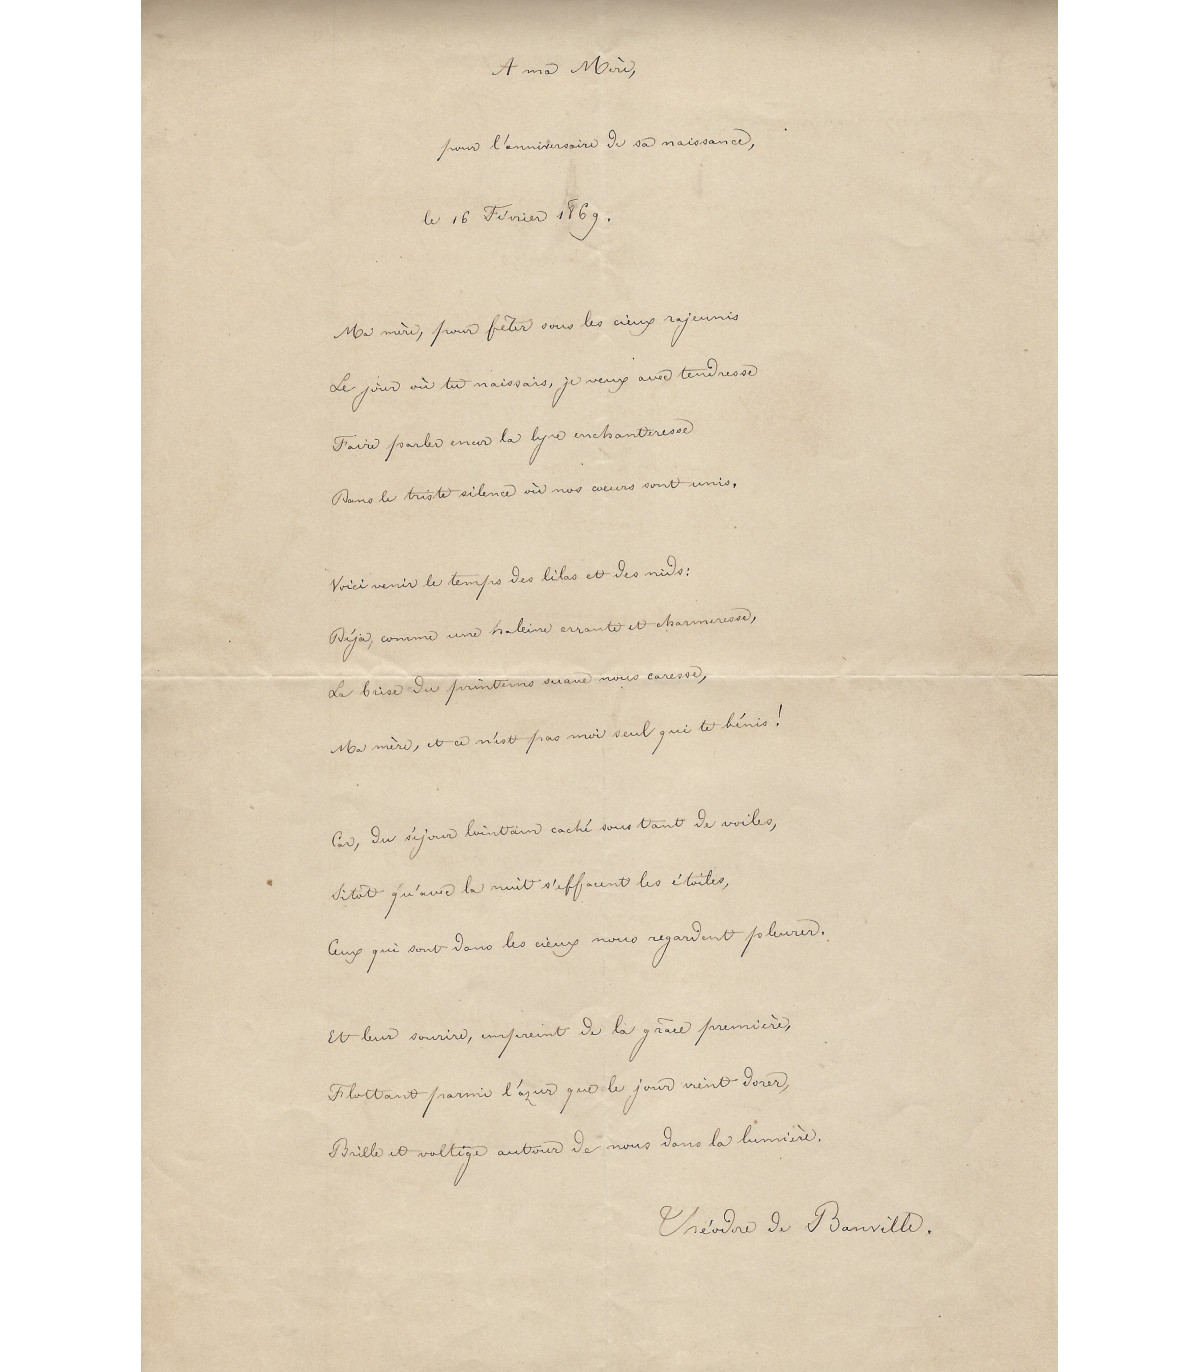 A ma Mère,
pour l'anniversaire de sa naissance,
le 16 Février 1869.
Ma mère, pour fêter sous les cieux rajeunis
Le jour où tu naissais, je veux avec tendresse
Faire parler encor la lyre enchanteresse
Dans le triste silence où nos cœurs sont unis.
Voici venir le temps des lilas et des nids:
Déjà, comme une haleine errante et charmeresse,
La brise du printemps suave nous caresse,
Ma mère, et ce n'est pas moi seul qui te bénis!
Car, du séjour lointain caché sous tant de voiles,
Sitôt qu'avec la nuit s'effacent les étoiles,
Ceux qui sont dans les cieux nous regardent pleurer.
Et leur sourire, empreint de la grâce première,
Flottant parmi l'azur que le jour vient dorer,
Brille et voltige autour de nous dans la lumière.
Théodore de Banville.